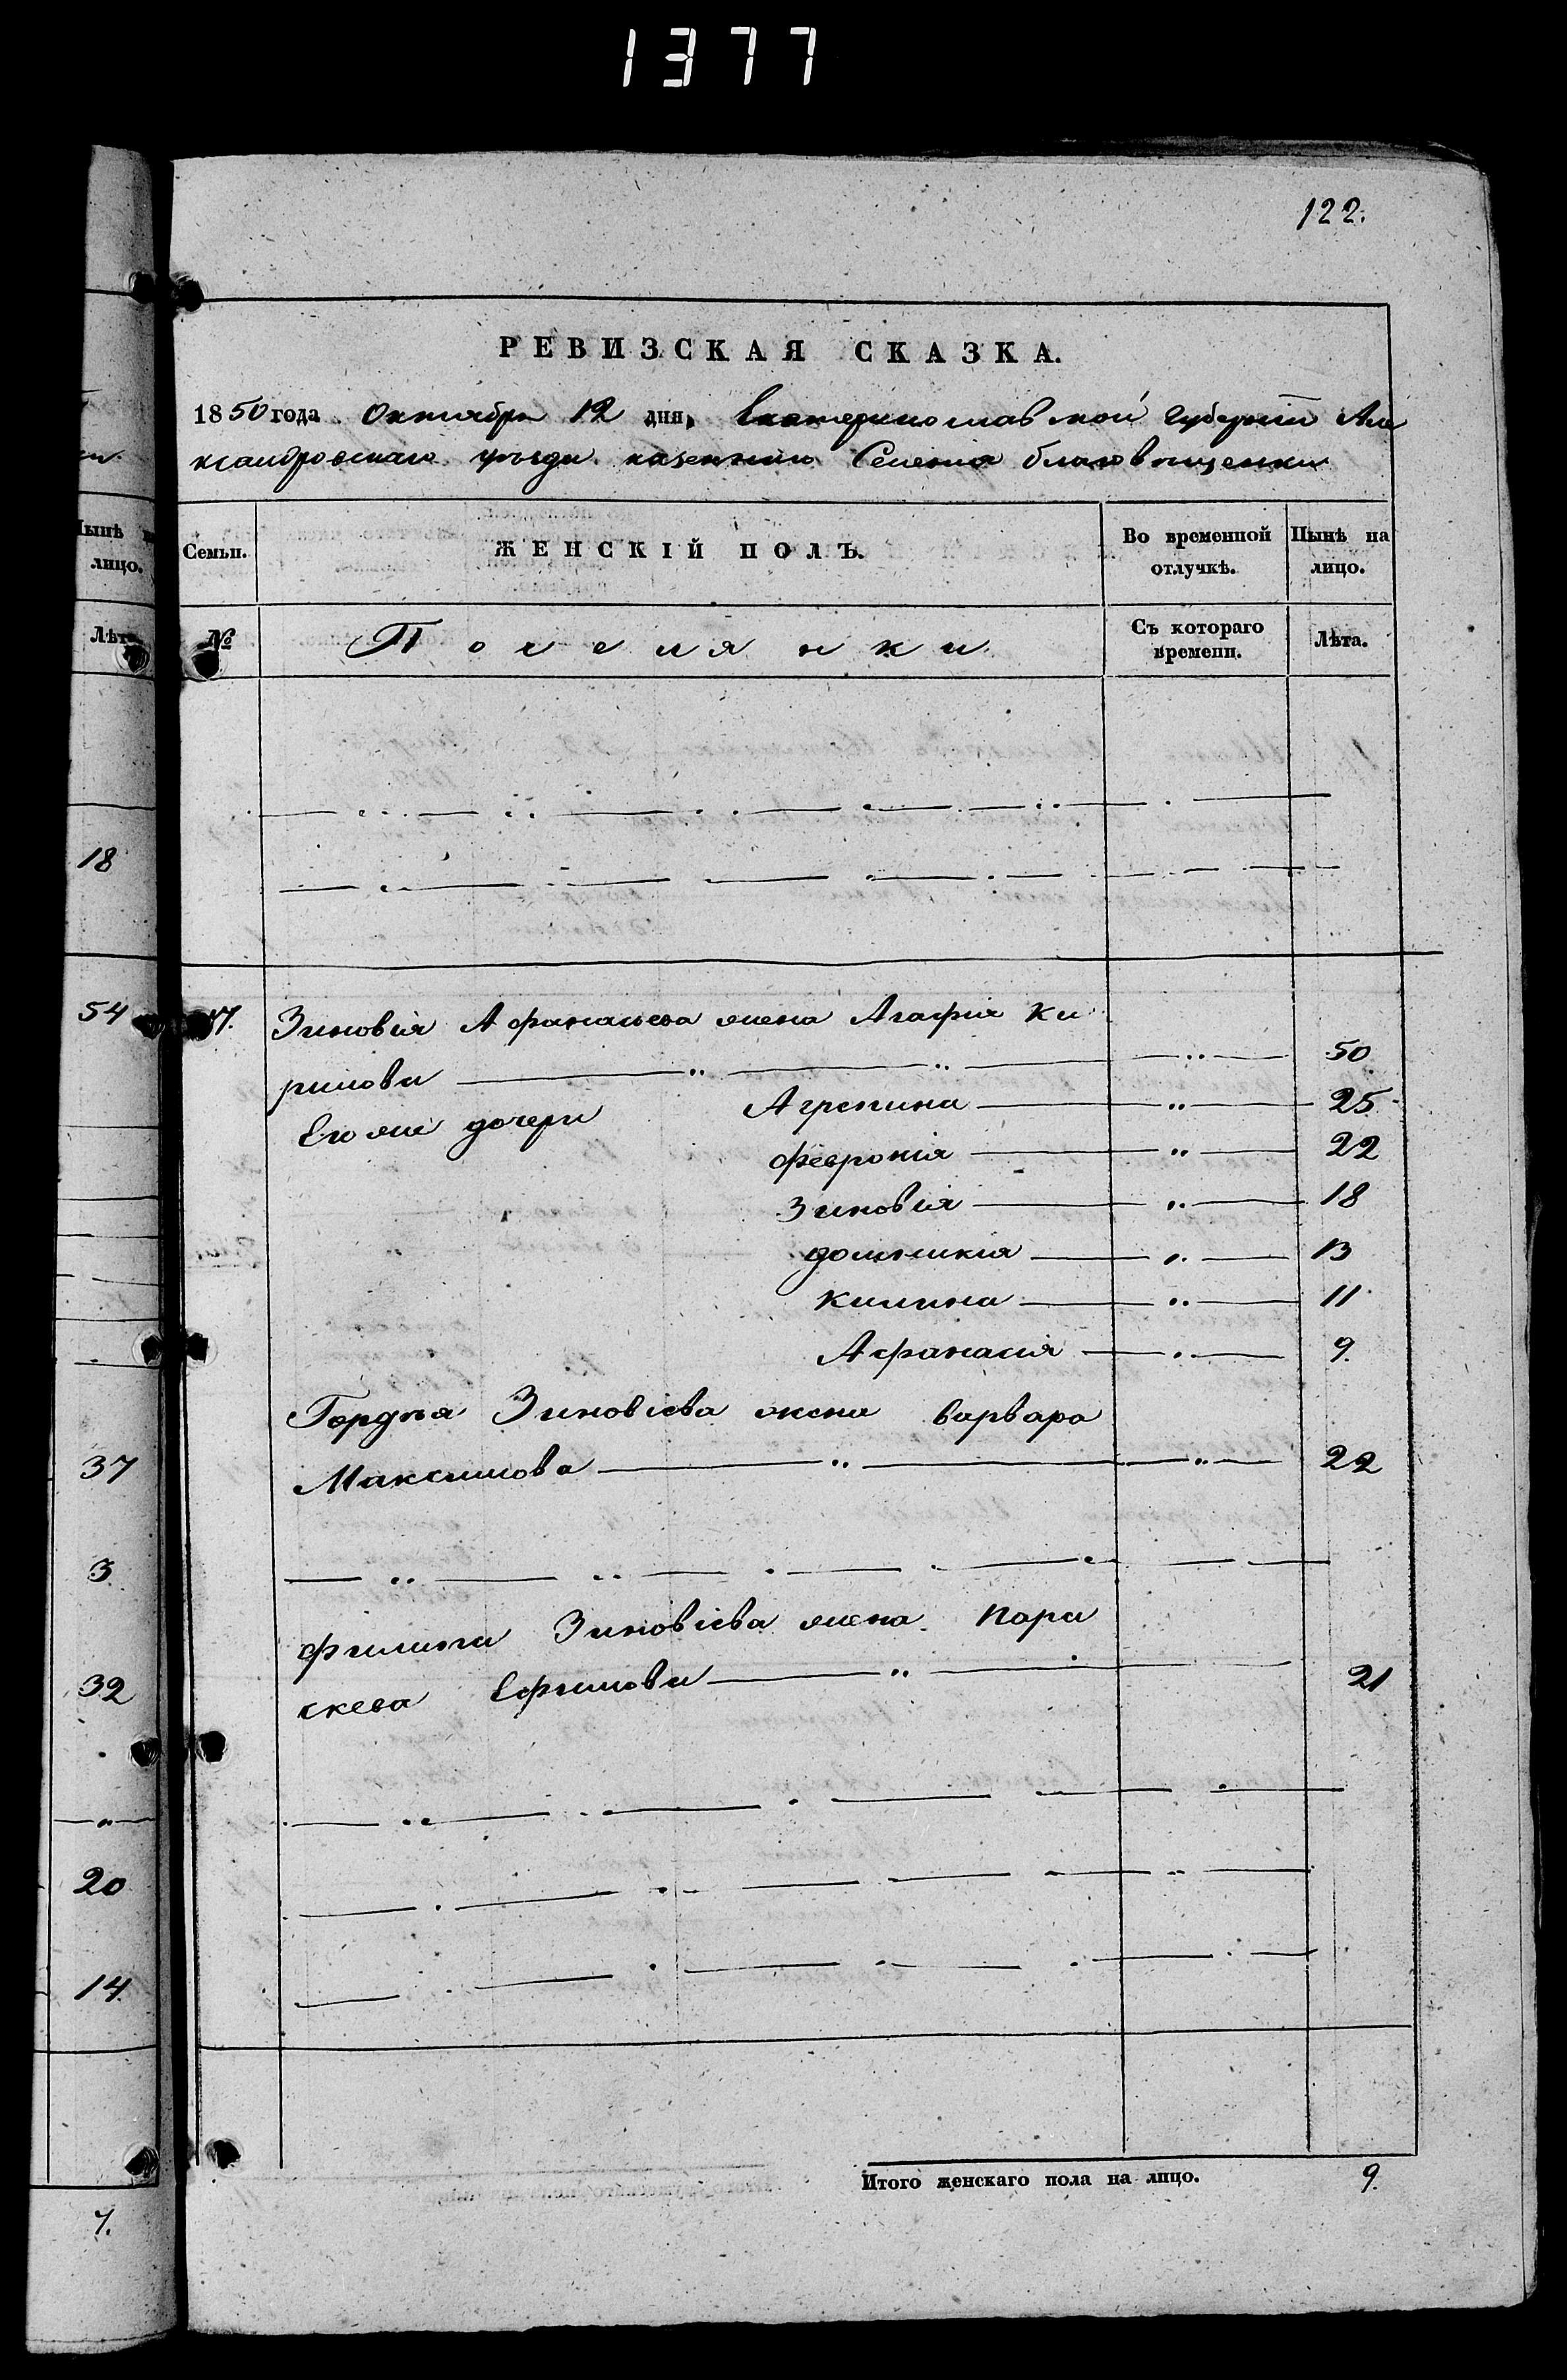 1377
122.
РЕВИЗСКАЯ СКАЗКА.
1850 года Октября 12 дня, Екатеринославской Губернии Але
ксандровскаго уѣзда казеннаго Селения благовѣщенки
Нынѣ на
лицо.
Лѣта
18
54
37
3
32
20
14
7.
Семьи.
ЖЕНСКІЙ ПОЛЪ.
Во временной
отлучкѣ.
Нынѣ на
лицо.
№
Поселянки
Съ котораго
времени.
Лѣта.
17. Зиновія Афанасьева жена Агафія Ки
рилова 50
Его же дочери Агрепина 25
Феврония 22
Зиновія 18
домникия 13
Килина 11
Афанасия 9.
Гордѣя Зиновіева жена варвара
Максимова 22
Филипа Зиновіева жена Пара
скева Ефимова 21
Итого женскаго пола на лицо. 9.